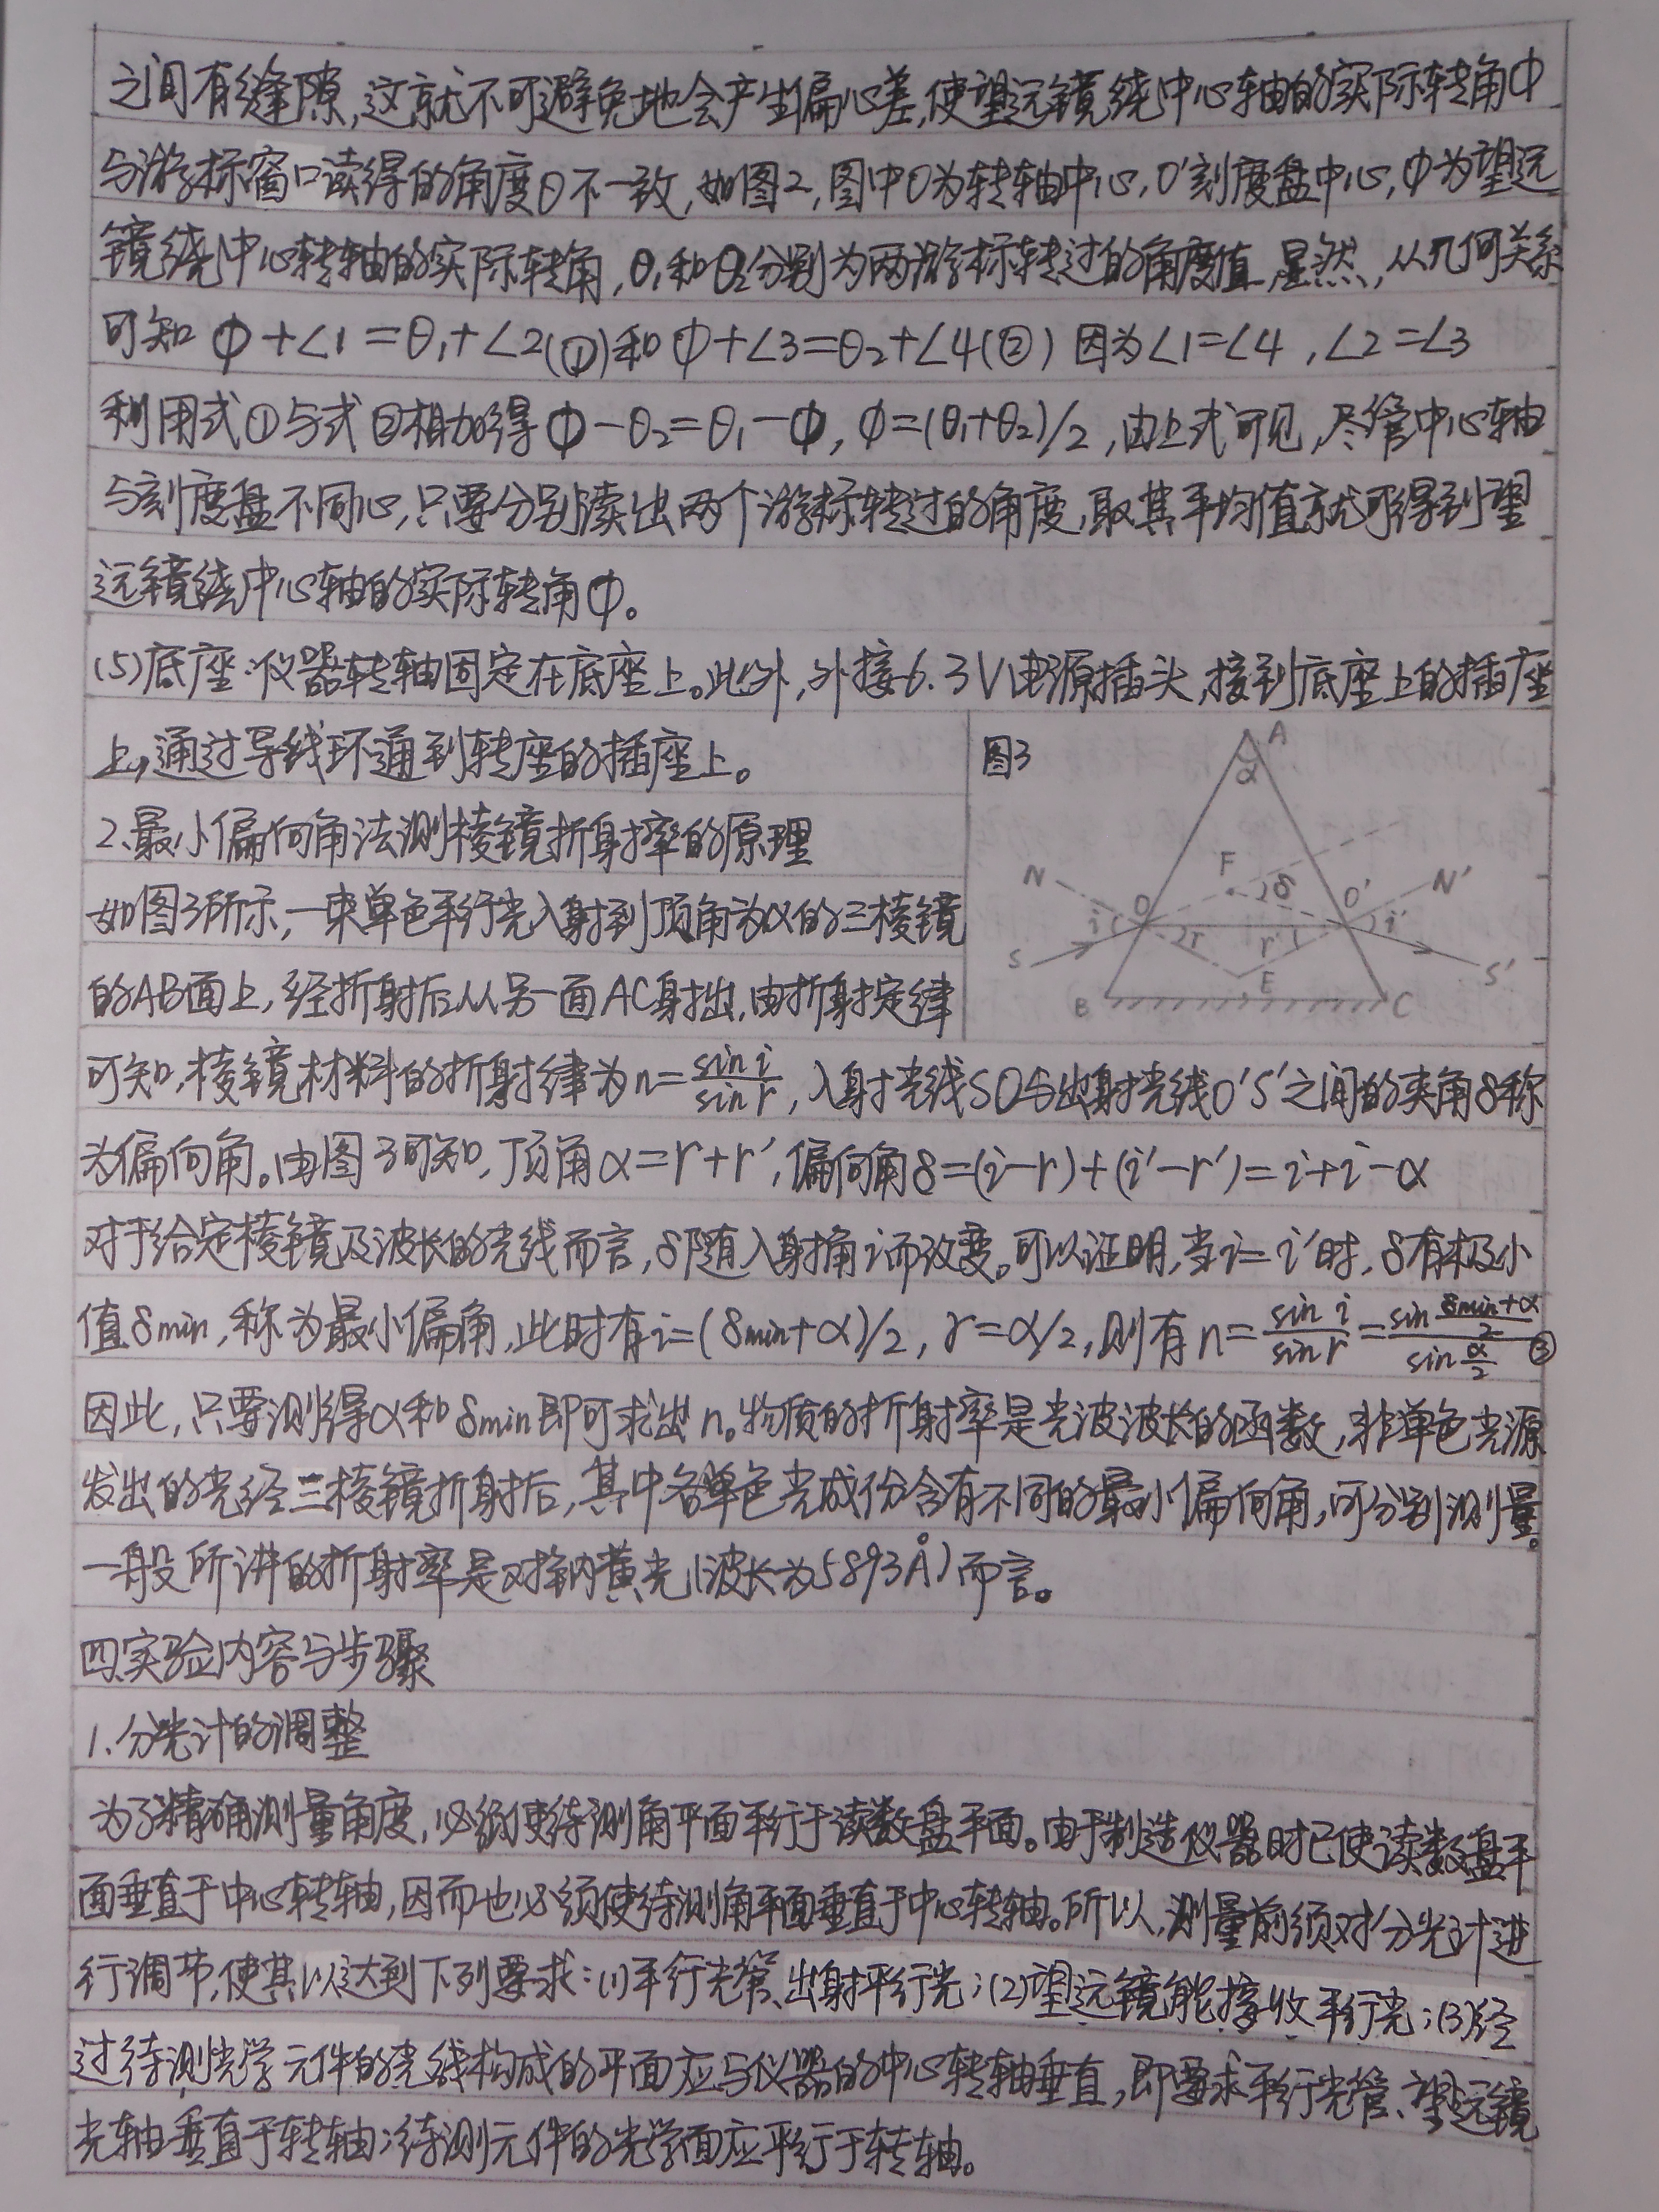 之间有缝隙,这就不可避免地会产生偏心差,使望远镜绕中心轴的实际转角φ
与游标窗口读得的角度θ不一致,如图2,图中O为转轴中心,O'刻度盘中心,φ为望远
镜绕中心转轴的实际转角,θ₁和θ₂分别为两游标转过的角度值.显然,从几何关系
可知 φ+∠1=θ₁+∠2(①)和φ+∠3=θ₂+∠4(②) 因为∠1=∠4,∠2=∠3
利用式①与式②相加得φ-θ₂=θ₁-φ,φ=(θ₁+θ₂)/2,由上式可见,尽管中心轴
与刻度盘不同心,只要分别读出两个游标转过的角度,取其平均值就可得到望
远镜绕中心轴的实际转角φ。
(5)底座:仪器转轴固定在底座上。此外,外接6.3V电源插头,接到底座上的插座
上,通过导线环通到转座的插座上。
图3
A
α
F
δ
N
N'
O
O'
i
i'
r
r'
S
S'
E
B
C
2、最小偏向角法测棱镜折射率的原理
如图3所示,一束单色平行光入射到顶角为α的三棱镜
的AB面上,经折射后从另一面AC射出.由折射定律
可知,棱镜材料的折射律为n=sin i/sin r,入射光线SO与出射光线O'S'之间的夹角δ称
为偏向角。由图3可知,顶角α=r+r',偏向角δ=(i-r)+(i'-r')=i+i-α
对于给定棱镜及波长的光线而言,δ随入射角i而改变。可以证明,当i=i'时,δ有极小
值δmin,称为最小偏角,此时有i=(δmin+α)/2,r=α/2,则有n=sin i/sin r=sin (δmin+α)/2/sin α/2 ③
因此,只要测得α和δmin即可求出n。物质的折射率是光波波长的函数,非单色光源
发出的光经三棱镜折射后,其中各单色光成份含有不同的最小偏向角,可分别测量。
一般所讲的折射率是对钠黄光(波长为5893Å)而言。
四、实验内容与步骤
1、分光计的调整
为了精确测量角度,必须使待测角平面平行于读数盘平面。由于制造仪器时已使读数盘平
面垂直于中心转轴,因而也必须使待测角平面垂直于中心转轴。所以,测量前须对分光计进
行调节,使其以达到下列要求:(1)平行光管、出射平行光;(2)望远镜能接收平行光;(3)经
过待测光学元件的光线构成的平面应与仪器的中心转轴垂直,即要求平行光管、望远镜
光轴垂直于转轴;待测元件的光学面应平行于转轴。